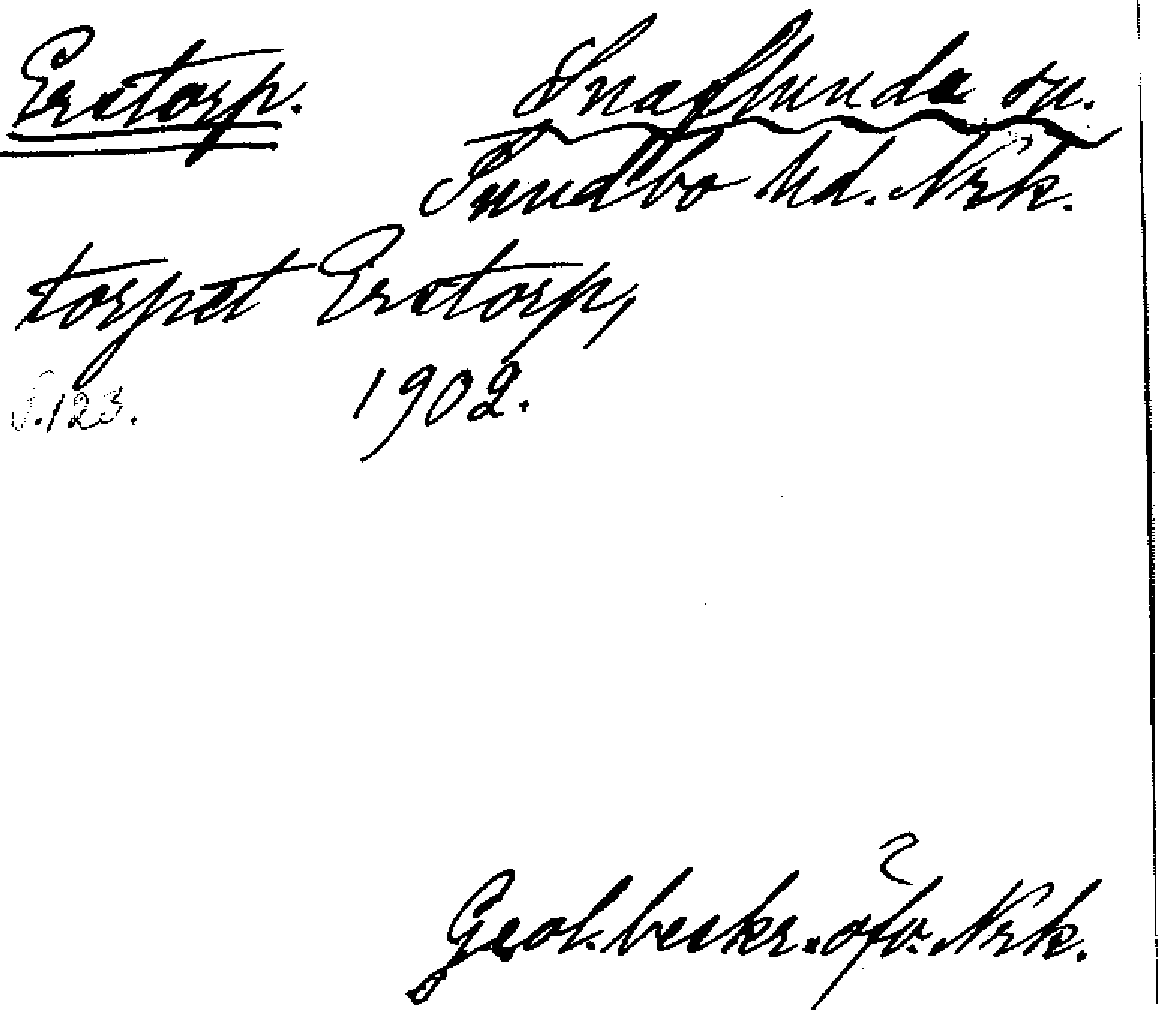 Erstorp. Snaflunda sn.
Sundbo hd. Nrk.
torpet Erstorp,
S.123. 1902.
Geol. beskr. öfv. Nrk.